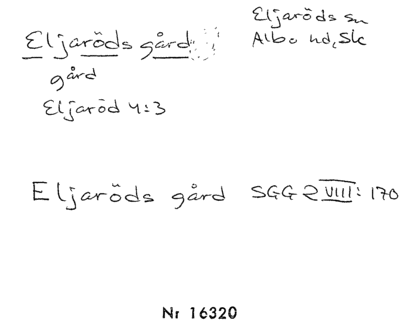 Eljaröds gård
Eljaröds sn
Albo hd, Sk
gård
Eljaröd 4:3
Eljaröds gård SGG 2 VIII: 170
Nr 16320